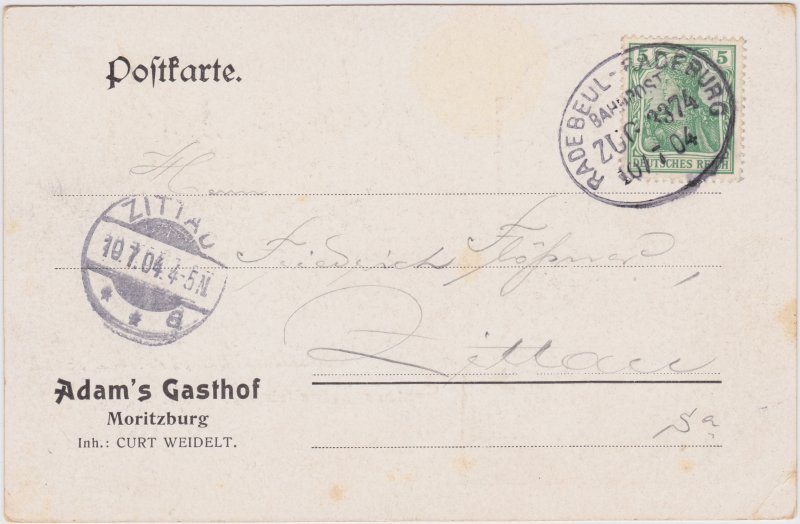 Postkarte.
5 5
DEUTSCHES REICH
RADEBEUL-RADEBURG
BAHNPOST
ZUG 3374
10 7 04
Herrn
ZITTAU
10.7.04.4-5N.
* * a
Friedrich Flößner
Zittau
Adam's Gasthof
Moritzburg
Inh.: CURT WEIDELT.
Sa